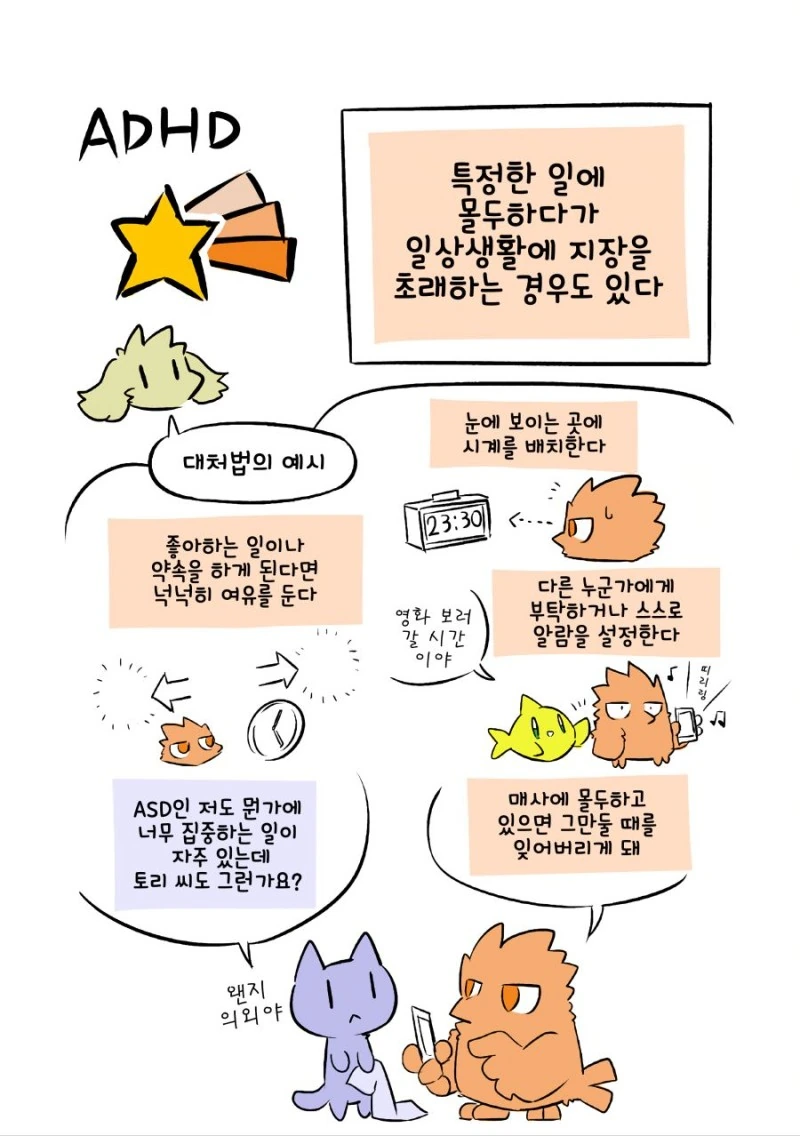 ADHD
특정한 일에
몰두하다가
일상생활에 지장을
초래하는 경우도 있다
대처법의 예시
눈에 보이는 곳에
시계를 배치한다
23:30
좋아하는 일이나
약속을 하게 된다면
넉넉히 여유를 둔다
다른 누군가에게
부탁하거나 스스로
알람을 설정한다
영화 보러
갈 시간
이야
띠리링
ASD인 저도 뭔가에
너무 집중하는 일이
자주 있는데
토리 씨도 그런가요?
매사에 몰두하고
있으면 그만둘 때를
잊어버리게 돼
왠지
의외야